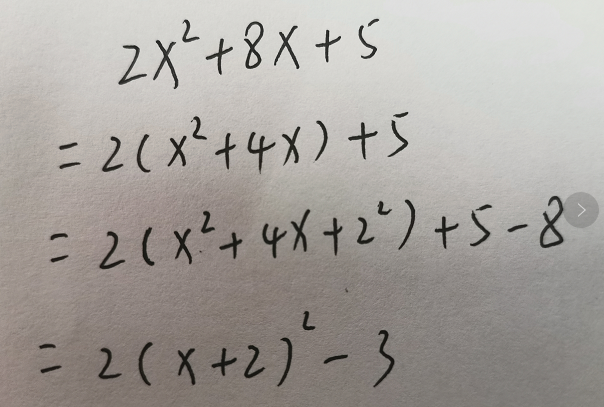 2x²+8x+5
=2(x²+4x)+5
=2(x²+4x+2²)+5-8
=2(x+2)²-3